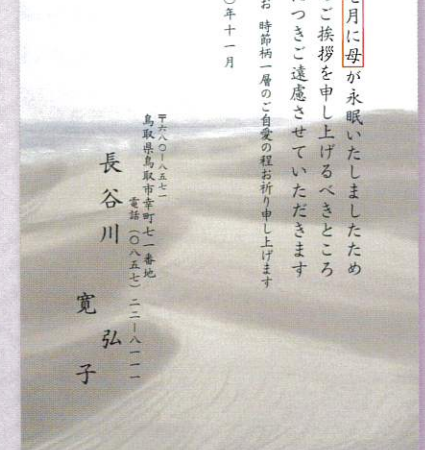 月に母が永眠いたしましたため
ご挨拶を申し上げるべきところ
につきご遠慮させていただきます
お 時節柄一層のご自愛の程お祈り申し上げます
〇年十一月
〒六八〇−八五七一
鳥取県鳥取市幸町七一番地
電話（〇八五七）二二−八一一一
長谷川 弘
寛子